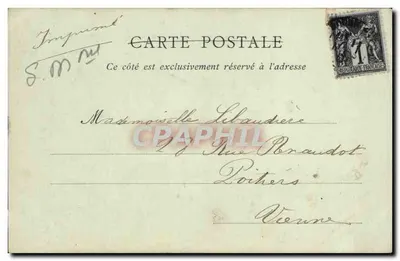 Imprimé
CARTE POSTALE
Ce côté est exclusivement réservé à l'adresse
Mademoiselle Lebaudère
CPAPHIL
27 Rue Renaudot
Poitiers
Vienne
1